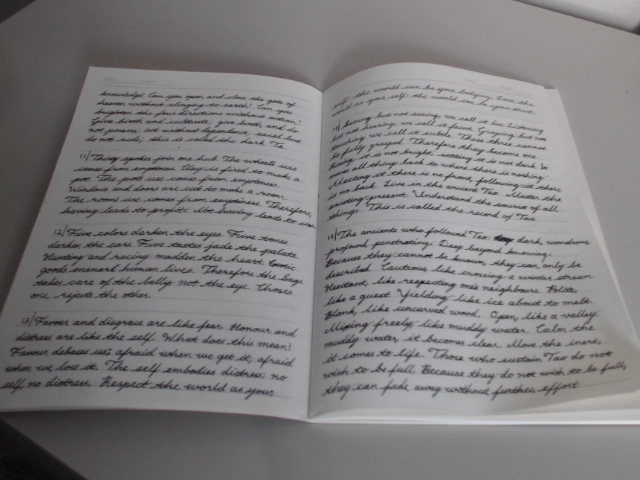 knowledge? Can you open and close the gate of
heaven without clinging to earth? Can you
brighten the four directions without action?
Give birth and cultivate, give birth and do
not possess: act without dependence, excel but
do not rule; this is called the dark Te.
11) Thirty spokes join one hub. The wheel's use
comes from emptiness. Clay is fired to make a
pot. The pot's use comes from emptiness.
Windows and doors are cut to make a room.
The room's use comes from emptiness. Therefore,
having leads to profit: Not having leads to use.
12) Five colors darken the eyes. Five tones
darken the ears. Five tastes jade the palate.
Hunting and racing madden the heart. Exotic
goods ensnare human lives. Therefore the Sage
takes care of the belly not the eye. Chooses
one, rejects the other.
13) Favour and disgrace are like fear. Honour and
distress are like the self. What does this mean?
Favour debases us: afraid when we get it, afraid
when we lose it. The self embodies distress: no
self, no distress. Respect the world as your
self: the world can be your lodging. Love the
world as your self: the world can be your trust.
14) Seeing but not seeing; we call it dim. Listening
but not hearing; we call it faint. Groping but not
touching; we call it subtle. These three cannot
be fully grasped. Therefore they become one.
Rising it is not bright; setting it is not dark. It
comes all things back to where there is nothing.
Meeting it there is no front, following it there
is no back. Live in the ancient Tao. Master the
existing present. Understand the source of all
things. This is called the record of Tao.
15) The ancients who followed Tao: dark, wondrous,
profound, penetrating. Deep beyond knowing.
Because they cannot be known, they can only be
described. Cautious, like crossing a winter stream.
Hesitant, like respecting one's neighbours. Polite
like a guest. Yielding like ice about to melt.
Blank, like uncarved wood. Open, like a valley.
Mixing freely like muddy water. Calm the
muddy water, it becomes clear. Move the inert,
it comes to life. Those who sustain Tao do not
wish to be full. Because they do not wish to be full,
they can fade away without further effort.